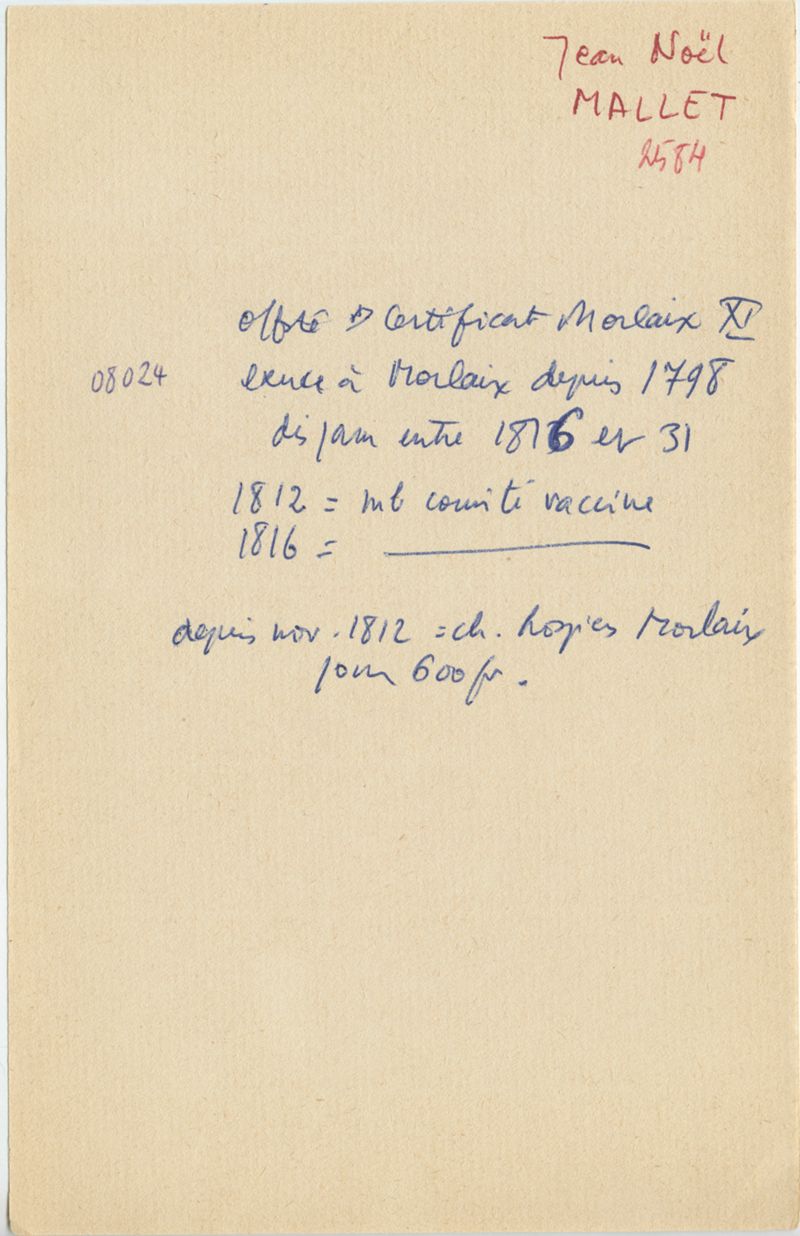 Jean Noël
MALLET
2584
offsté Certificat Morlaix XI
08024 exerce à Morlaix depuis 1798
disparu entre 1816 et 31
1812 = mb comité vaccine
1816 =
depuis nov. 1812 = ch. hospices Morlaix
pour 600 fr.